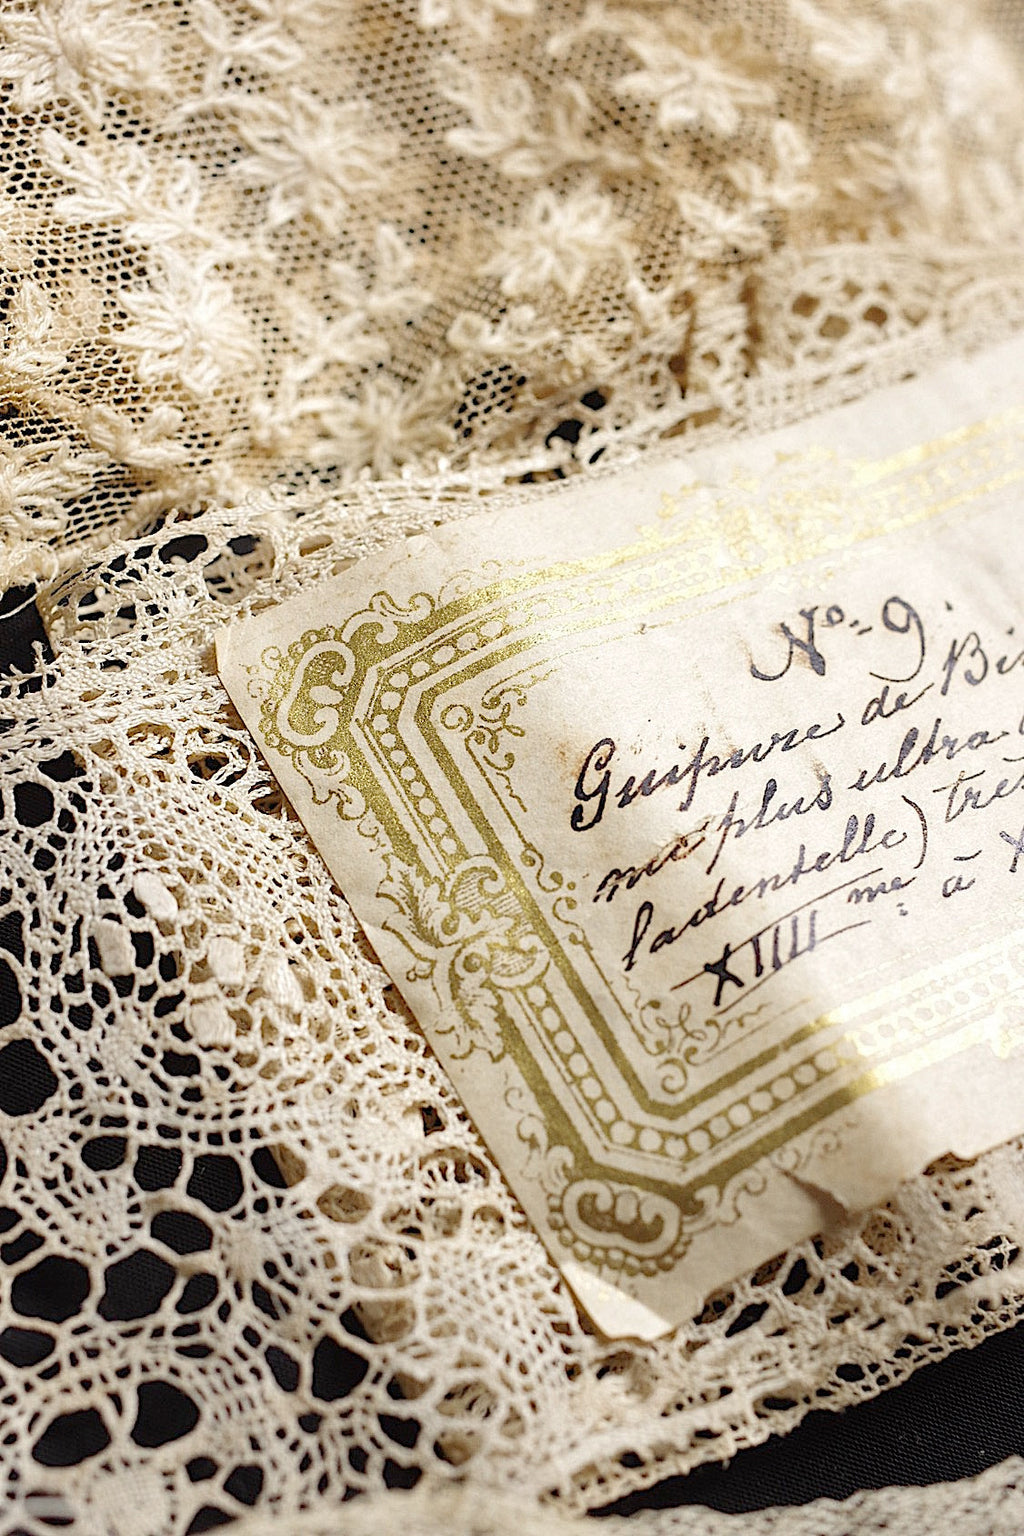 Nº 9.
Guipure de Bi
plus ultra
la dentelle) trè
XIIII me à X